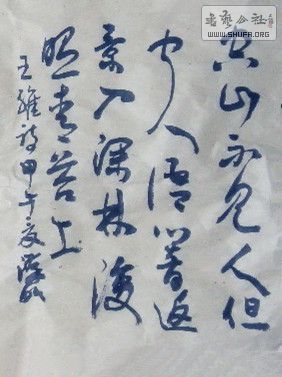 空山不见人但
闻人语响返
景入深林复
照青苔上
王维诗甲午夏
书艺公社
WWW.SHUFA.ORG